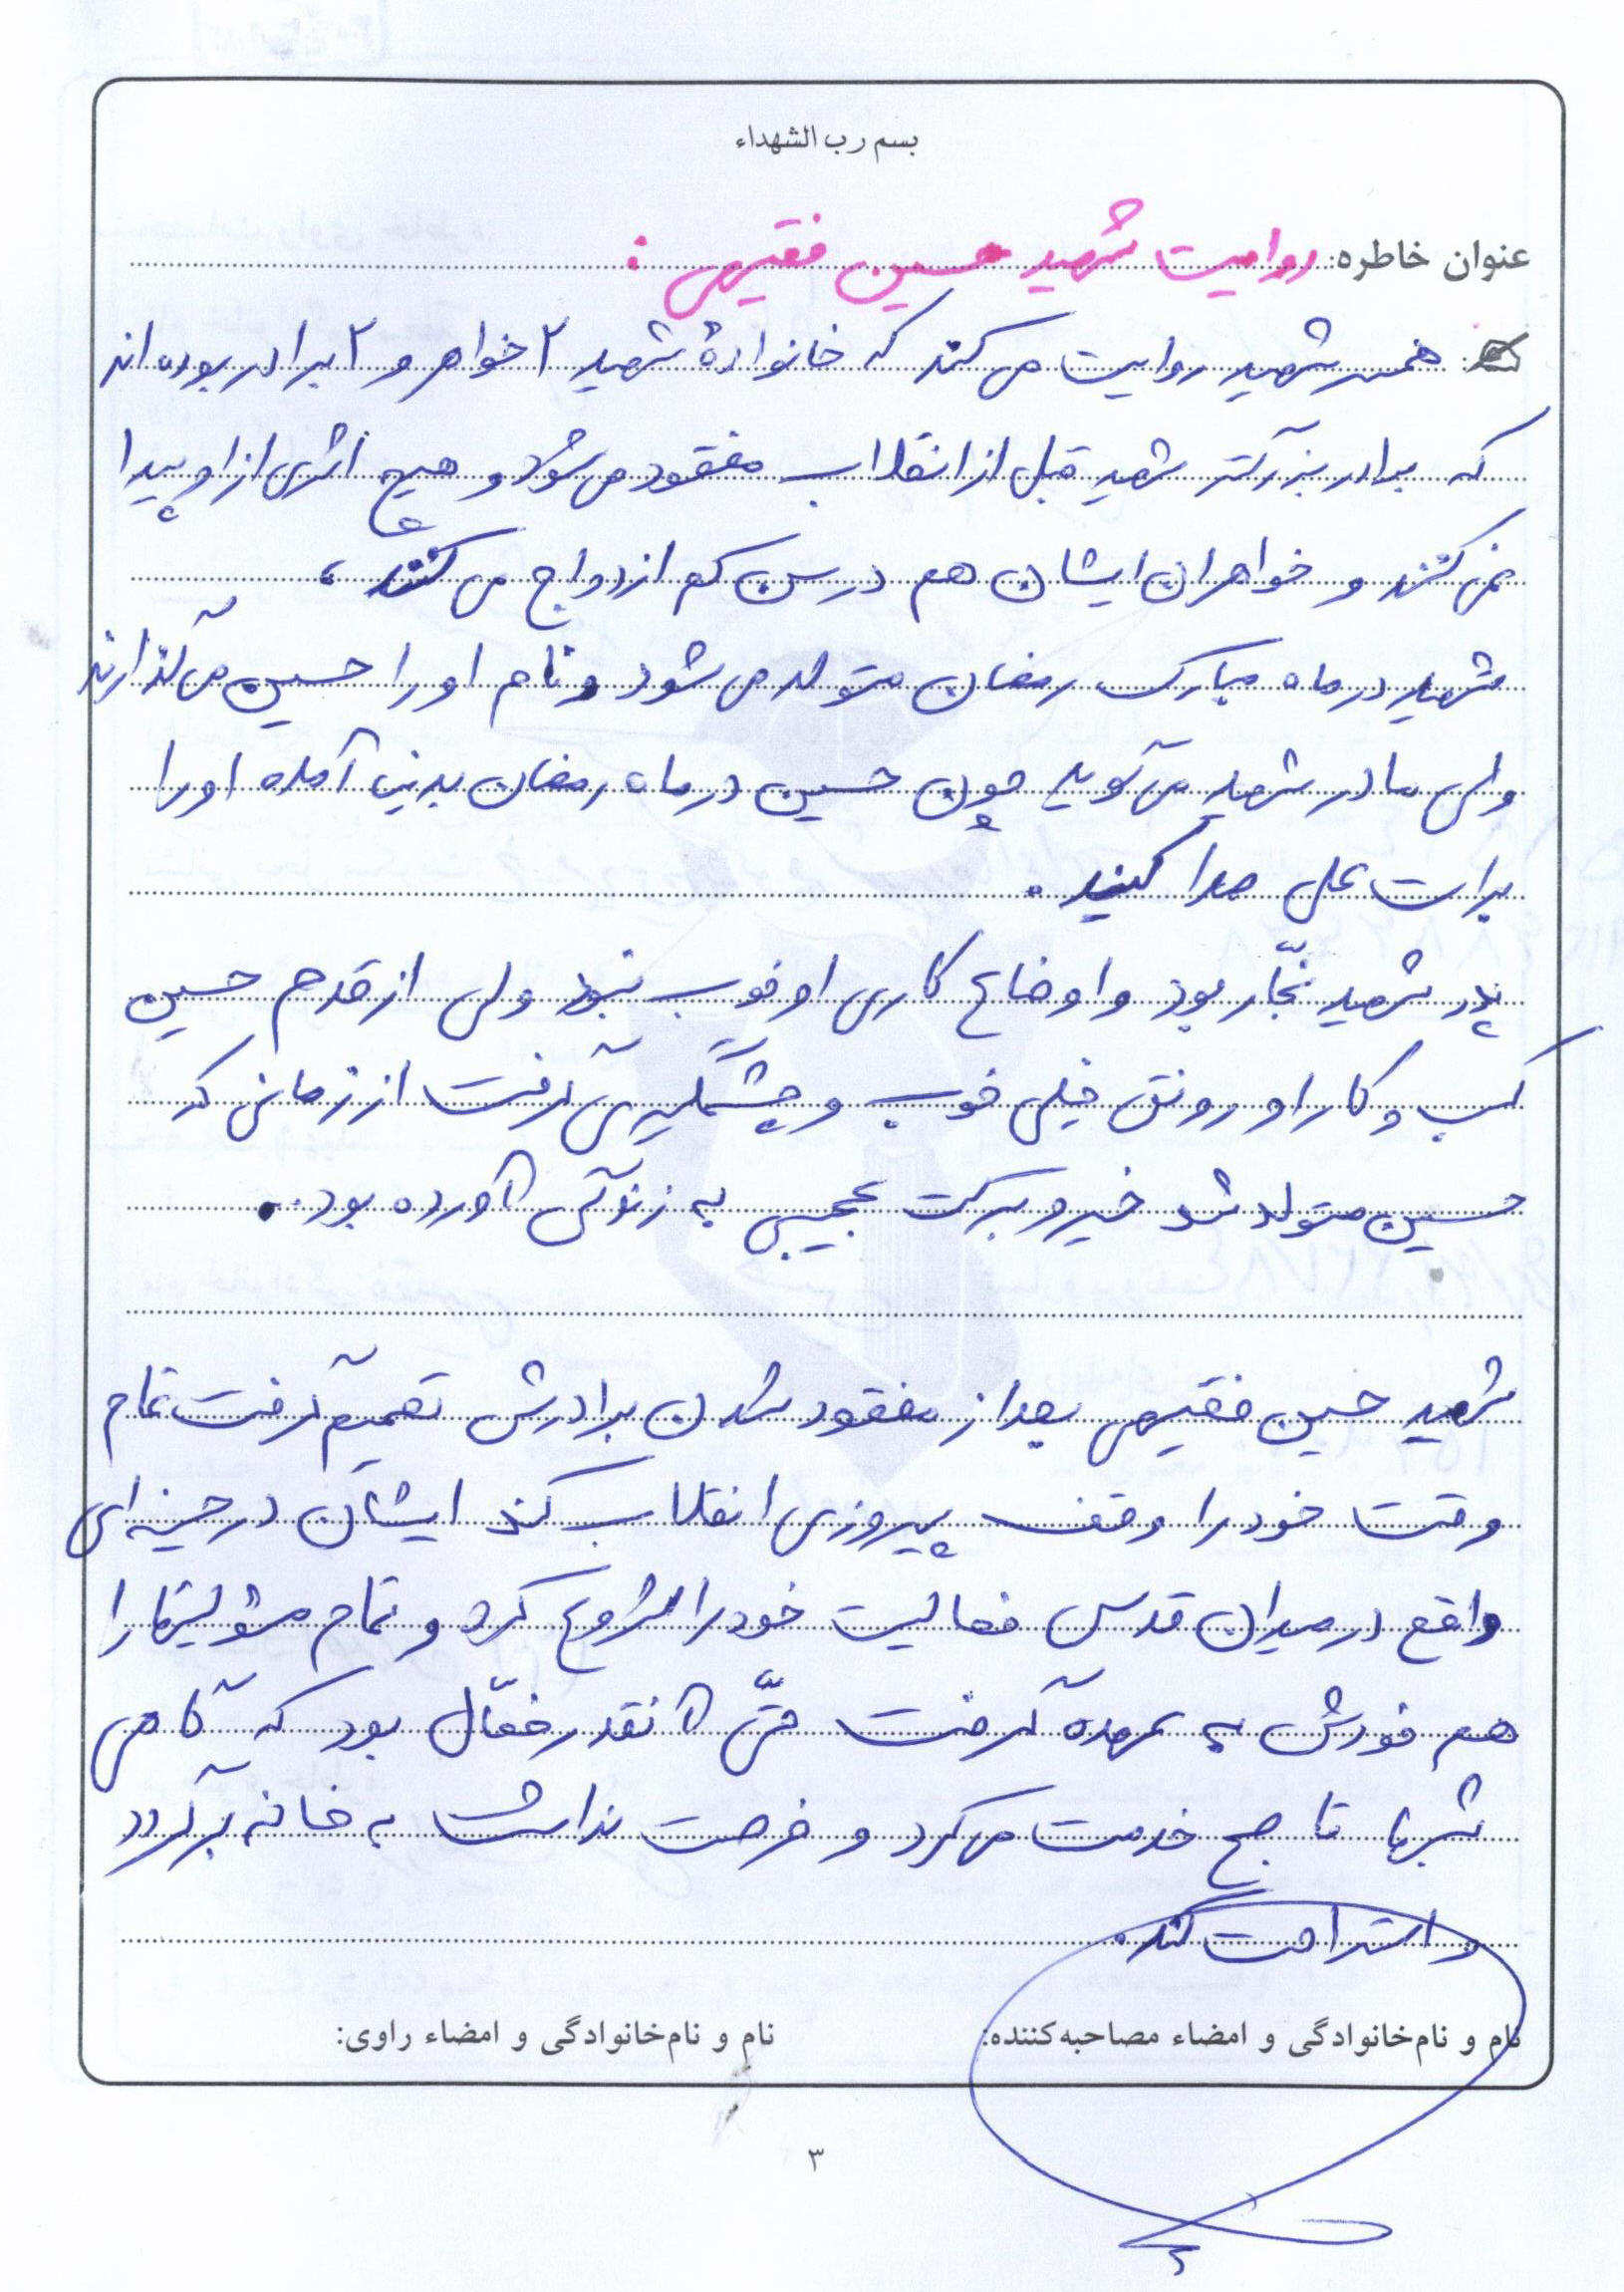 بسم رب الشهداء
عنوان خاطره: روایت شهید حسین فقیهی :
همسر شهید روایت می کند که خانوادهٔ شهید ۲ خواهر و ۲ برادر بوده اند
که برادر بزرگتر شهید قبل از انقلاب مفقود می شود و هیچ اثری از او پیدا
نمی کنند و خواهران ایشان هم در سن کم ازدواج می کنند ،
شهید در ماه مبارک رمضان متولد می شود و نام او را حسین می گذارند
ولی مادر شهید می گوید چون حسین در ماه رمضان بدنیا آمده او را
برات علی صدا کنید .
پدر شهید نجّار بود و اوضاع کاری او خوب نبود ولی از قدم حسین
کسب و کار او رونق خیلی خوب و چشمگیری گرفت از زمانی که
حسین متولد شد خیر و برکت عجیبی به زندگی آورده بود .
شهید حسین فقیهی بعد از مفقود شدن برادرش تصمیم گرفت تمام
وقت خود را وقف پیروزی انقلاب کند ایشان در حسینه ای
واقع در میدان قدس فعالیت خود را شروع کرد و تمام مسئولیتها را
هم خودش به عهده گرفت حتّی آنقدر فعّال بود که گاهی
شبها تا صبح خدمت می کرد و فرصت نداشت به خانه برگردد
و استراحت کند .
نام و نام‌خانوادگی و امضاء مصاحبه‌کننده: نام و نام‌خانوادگی و امضاء راوی:
۳